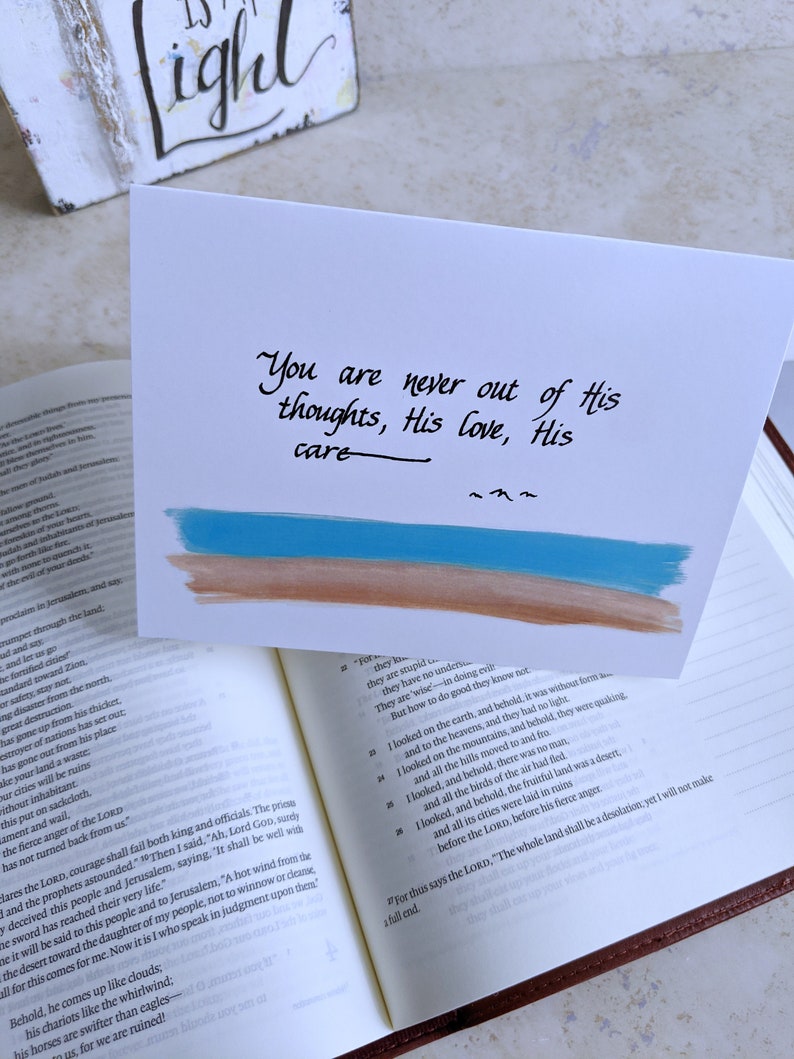 IS MY
Light
You are never out of His
thoughts, His love, His
care
desirable things from my presence
"As the LORD lives,'
all bless themselves in him,
shall they glory."
the men of Judah and Jerusalem:
fallow ground,
among thorns.
yourselves to the LORD;
of your hearts,
Judah and inhabitants of Jerusalem
go forth like fire,
with none to quench it,
of the evil of your deeds."
proclaim in Jerusalem, and say,
trumpet through the land;
loud and say,
and let us go
the fortified cities!'
standard toward Zion,
for safety, stay not,
bring disaster from the north,
great destruction.
has gone up from his thicket,
destroyer of nations has set out;
has gone out from his place
make your land a waste;
your cities will be ruins
without inhabitant.
this put on sackcloth,
lament and wail,
the fierce anger of the LORD
has not turned back from us."
declares the LORD, courage shall fail both king and officials. The priests
and the prophets astounded." 10 Then I said, "Ah, Lord GOD, surely
deceived this people and Jerusalem, saying, 'It shall be well with
the sword has reached their very life."
time it will be said to this people and to Jerusalem, "A hot wind from the
the desert toward the daughter of my people, not to winnow or cleanse,
full for this comes for me. Now it is I who speak in judgment upon them."
Behold, he comes up like clouds;
his chariots like the whirlwind;
his horses are swifter than eagles—
to us, for we are ruined!
22 "For
they kn
they are stupid
they have no understa
They are 'wise'—in doing evil
But how to do good they know not."
23 I looked on the earth, and behold, it was without form and
and to the heavens, and they had no light.
24 I looked on the mountains, and behold, they were quaking,
and all the hills moved to and fro.
25 I looked, and behold, there was no man,
and all the birds of the air had fled.
26 I looked, and behold, the fruitful land was a desert,
and all its cities were laid in ruins
before the LORD, before his fierce anger.
27 For thus says the LORD, "The whole land shall be a desolation; yet I will not make
a full end.